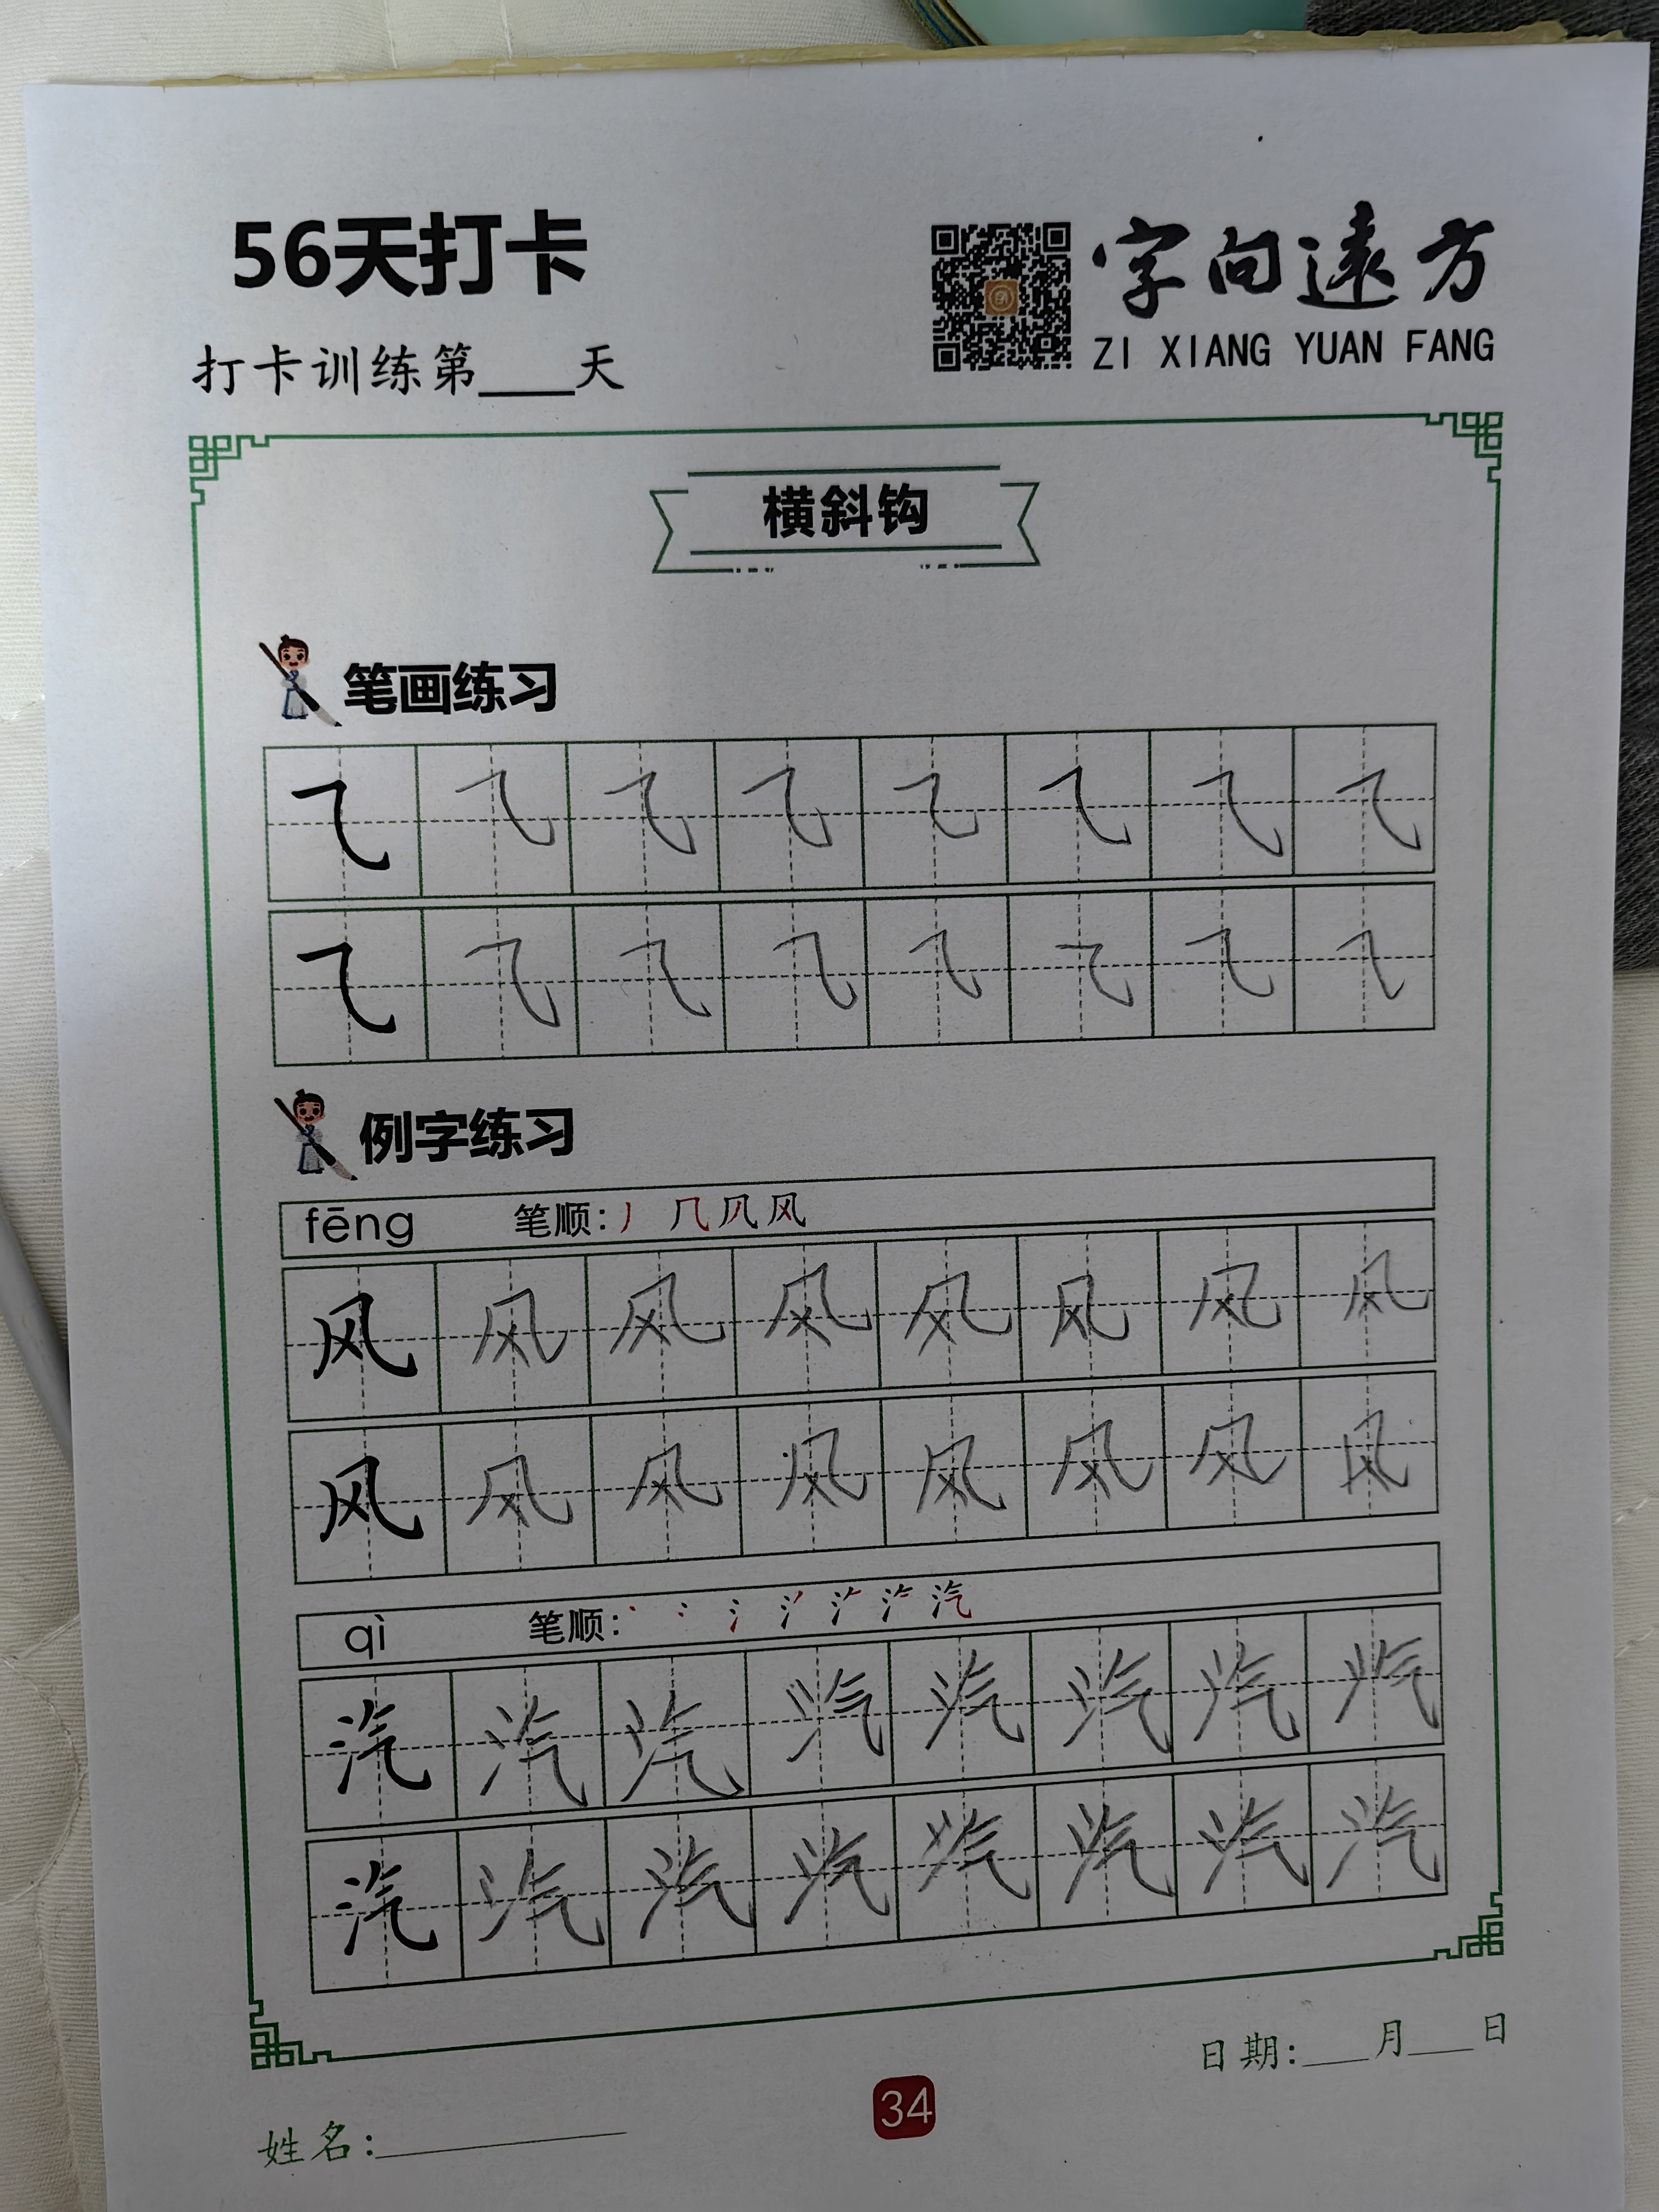 56天打卡
字向遠方
ZI XIANG YUAN FANG
打卡训练第____天
横斜钩
笔画练习
㇈ ㇈ ㇈ ㇈ ㇈ ㇈ ㇈ ㇈
㇈ ㇈ ㇈ ㇈ ㇈ ㇈ ㇈ ㇈
例字练习
fēng 笔顺: 丿 几 风
风 风 风 风 风 风 风 风
风 风 风 风 风 风 风 风
qì 笔顺: 丶 冫 氵 汽
汽 汽 汽 汽 汽 汽 汽 汽
汽 汽 汽 汽 汽 汽 汽 汽
日期:___月___日
34
姓名: